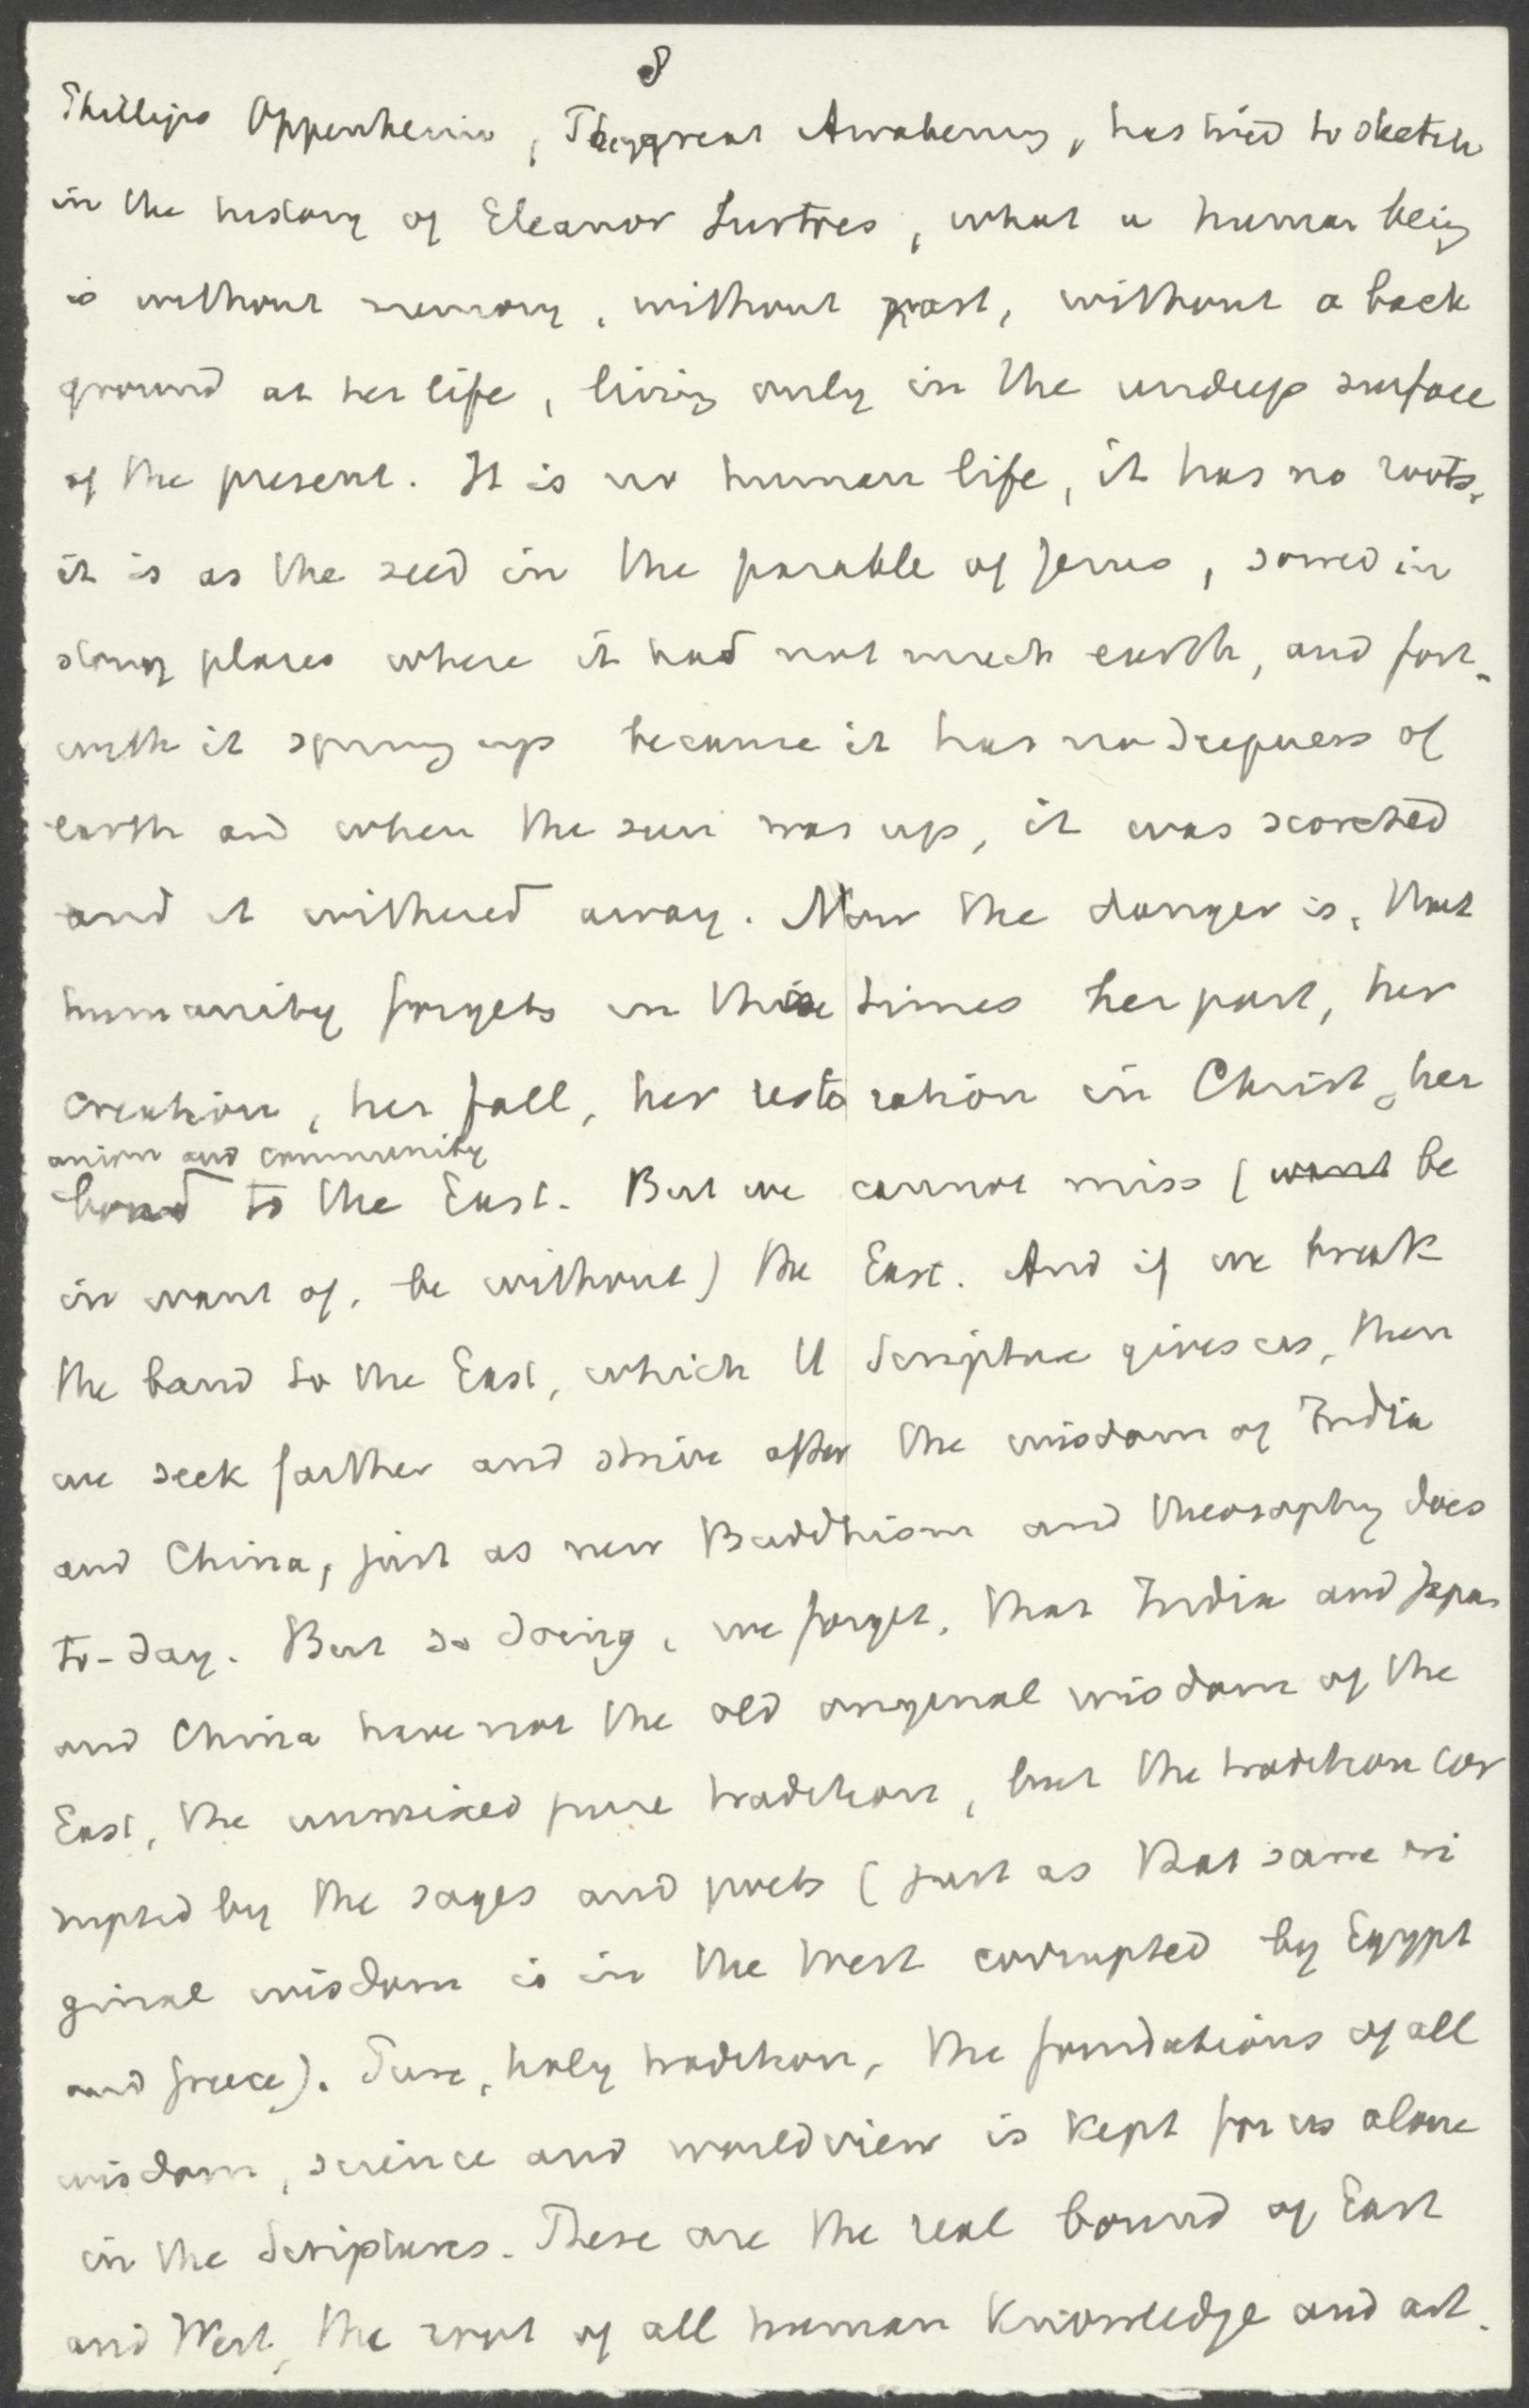 8
Phillips Oppenheim, The great Awakening, has tried to sketch
in the history of Eleanor Surtoes, what a human being
is without memory, without past, without a back
ground at her life, living only in the undeep surface
of the present. It is no human life, it has no roots,
it is as the seed in the parable of Jesus, sowed in
stony places where it had not much earth, and fort-
with it sprung up because it has no deepness of
earth and when the sun was up, it was scorched
and it withered away. Now the danger is, that
humanity forgets in these times her past, her
creation, her fall, her restoration in Christ, her
union and community
bond to the East. But we cannot miss (want be
in want of, be without) the East. And if we break
the band to the East, which H Scripture gives us, then
we seek farther and strive after the wisdom of India
and China, just as new Buddhism and theosophy does
to-day. But so doing, we forget, that India and Japan
and China have not the old original wisdom of the
East, the unmixed pure tradition, but the tradition cor
rupted by the sages and poets (just as that same ori
ginal wisdom is in the West corrupted by Egypt
and Greece). Pure, holy tradition, the foundations of all
wisdom, science and worldview is kept for us alone
in the Scriptures. These are the real bound of East
and West, the root of all human knowledge and art.